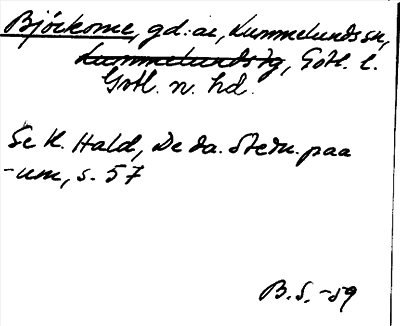 Björkome, gd:ar, Lummelunds sn,
Lummelunds tg, Gotl. l.
Gotl. n. hd.
Se K. Hald, De da. Stedn. paa
-um, s. 57
B.S. -59